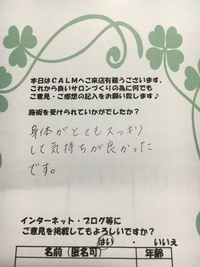 本日はCALMへご来店有難うございます。
これから良いサロンづくりの為に何でも
ご意見・ご感想の記入をお願い致します♪
施術を受けられていかがでしたか?
身体がとてもスッキリ
して気持ちが良かった
です。
インターネット・ブログ等に
ご意見を掲載してもよろしいですか?
はい ・ いいえ
名前(匿名可) 年齢